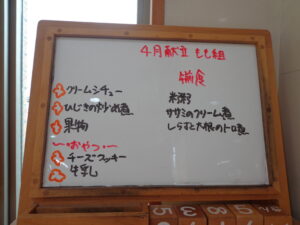 4月献立 もも組
クリームシチュー
ひじきの炒め煮
果物
〜おやつ〜
チーズクッキー
牛乳
補食
米粥
ササミのクリーム煮
しらすと大根のトロ煮